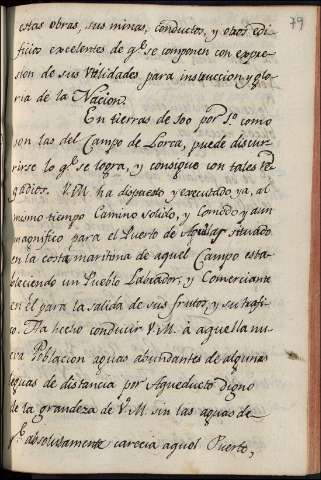 79
estas obras, sus minas, conductos, y otros edi-
ficios excelentes de q.e se componen con expre-
sion de sus vtilidades para instruccion y glo-
ria de la Nacion.
En tierras de 500 por 10 como
son las del Campo de Lorca, puede discur-
rirse lo q.e se logra, y consigue con tales Re-
gadios. V.M. ha dispuesto y executado ya, al
mismo tiempo Camino solido, y Comodo y aun
magnifico para el Puerto de Aguilas situado
en la costa maritima de aquel Campo esta-
bleciendo un Pueblo Labrador, y Comerciante
en él para la salida de sus frutos, y su trafi-
co. Ha hecho conducir V.M. à aquella nu-
eva Poblacion aguas abundantes de algunas
leguas de distancia por Aqueducto digno
de la grandeza de V.M. sin las aguas de
q.e absolutamente carecia aquel Puerto,